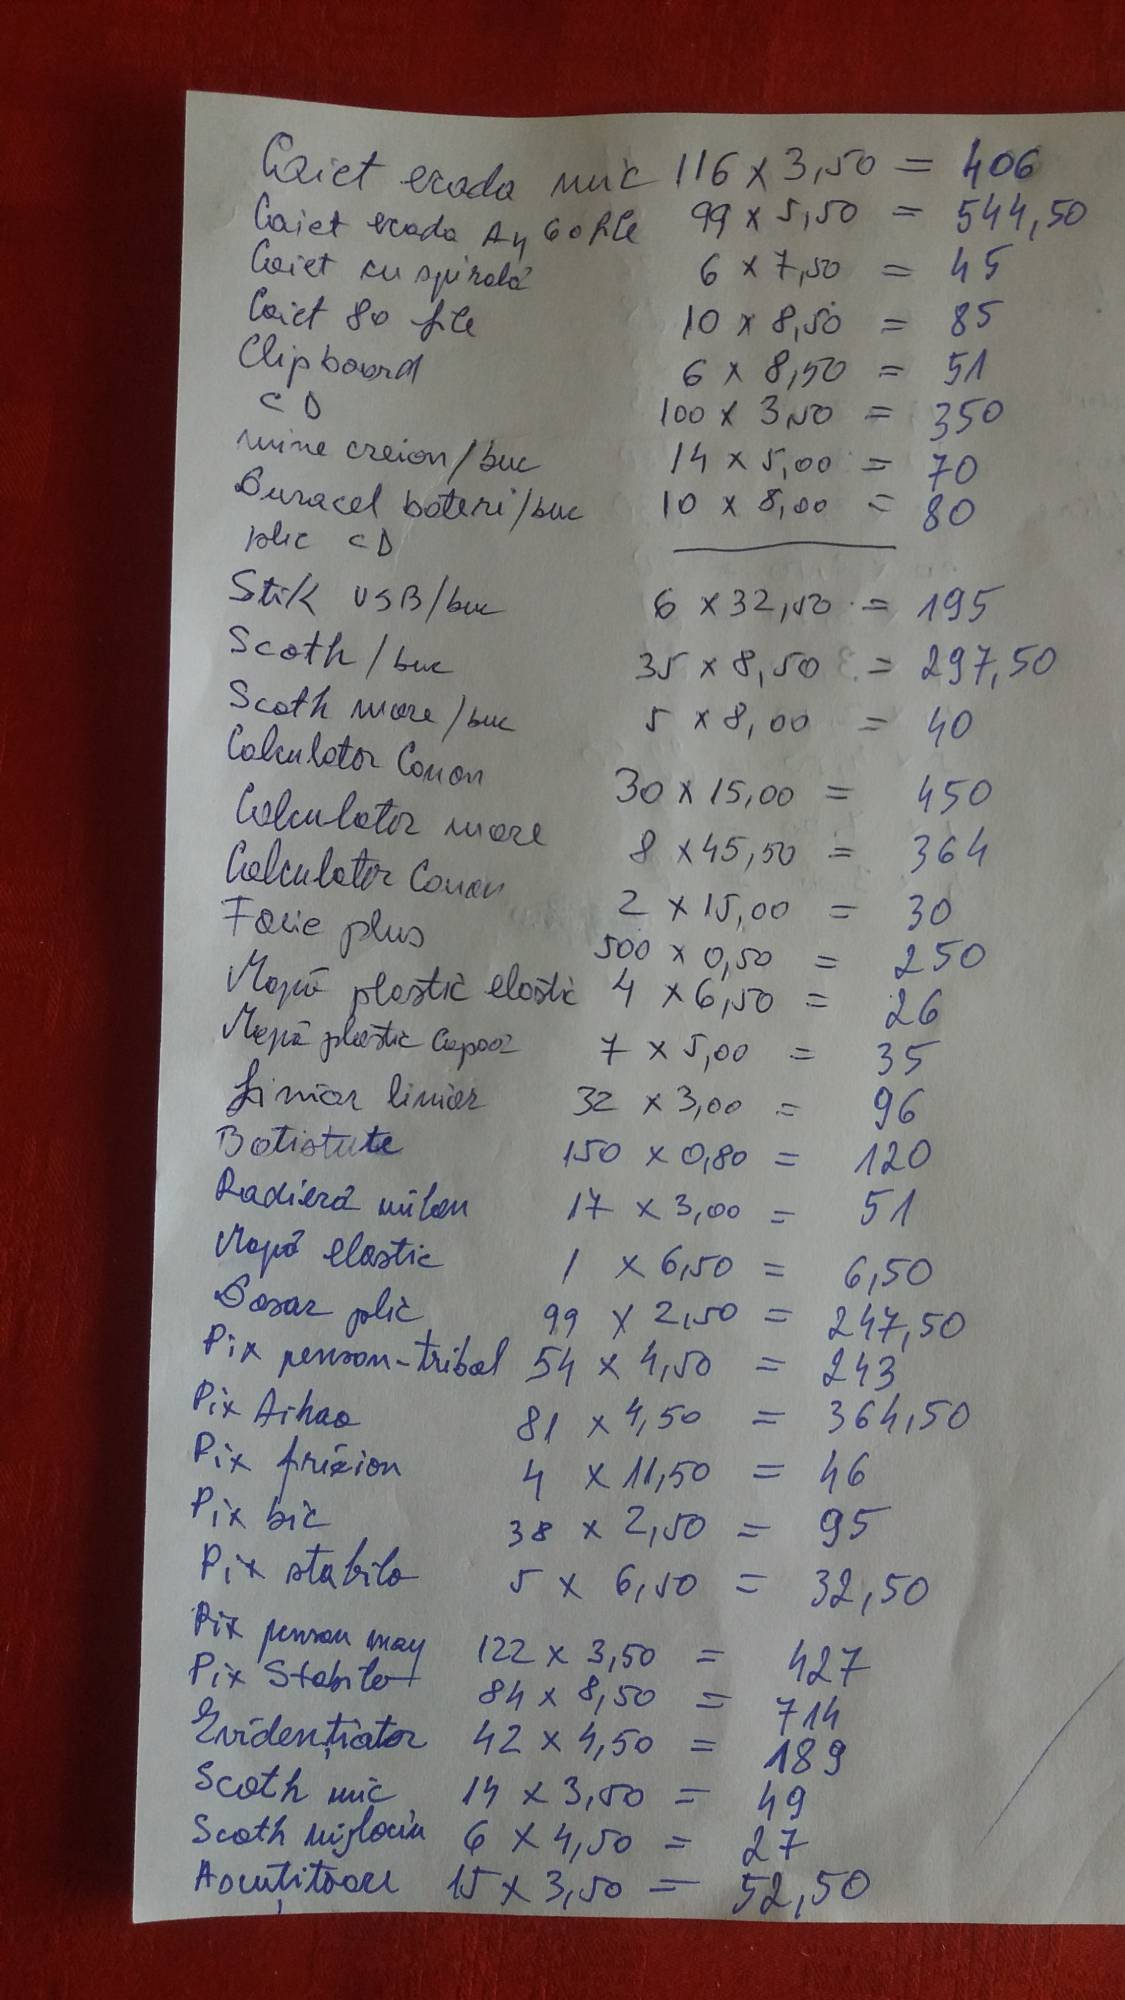 Caiet ecada mic 116 x 3,50 = 406
Caiet ecada A4 60 file 99 x 5,50 = 544,50
Caiet cu spirală 6 x 7,50 = 45
Caiet 80 file 10 x 8,50 = 85
Clipboard 6 x 8,50 = 51
CD 100 x 3,50 = 350
mine creion/buc 14 x 5,00 = 70
Duracel baterii/buc 10 x 8,00 = 80
plic CD
Stik USB/buc 6 x 32,50 = 195
Scoth/buc 35 x 8,50 = 297,50
Scoth mare/buc 5 x 8,00 = 40
Calculator Canon 30 x 15,00 = 450
Calculator mare 8 x 45,50 = 364
Calculator Canon 2 x 15,00 = 30
Folie plus 500 x 0,50 = 250
Mapă plastic elastic 4 x 6,50 = 26
Mapă plastic capaz 7 x 5,00 = 35
Liniar liniar 32 x 3,00 = 96
Batistute 150 x 0,80 = 120
Radieră milan 17 x 3,00 = 51
Mapă elastic 1 x 6,50 = 6,50
Dosar plic 99 x 2,50 = 247,50
Pix penson-tribal 54 x 4,50 = 243
Pix Aihao 81 x 4,50 = 364,50
Pix frixion 4 x 11,50 = 46
Pix bic 38 x 2,50 = 95
Pix stabilo 5 x 6,50 = 32,50
Pix penson may 122 x 3,50 = 427
Pix Stabilo 84 x 8,50 = 714
Evidențiator 42 x 4,50 = 189
Scoth mic 14 x 3,50 = 49
Scoth mijlociu 6 x 4,50 = 27
Ascuțitoare 15 x 3,50 = 52,50